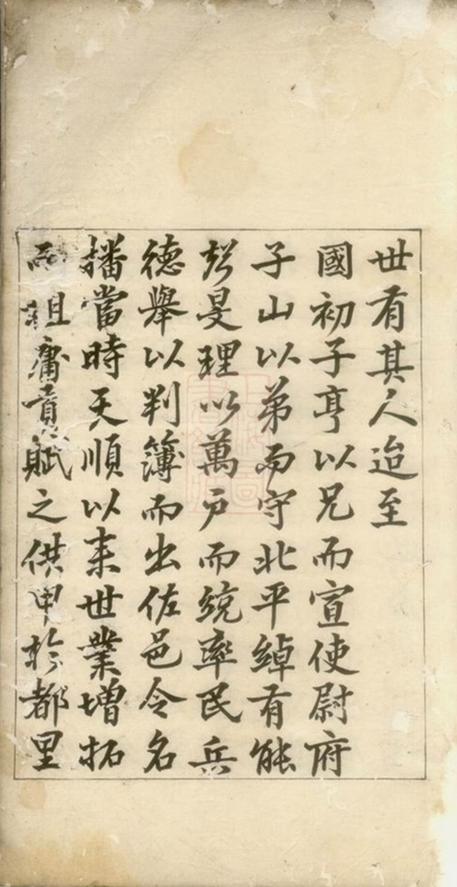 世有其人迨至
國初子亨以兄而宣使尉府
子山以弟而守北平綽有能
誉旻理以萬户而统率民兵
德舉以判簿而出佐邑令名
播當時天順以来世業增拓
而租庸貢賦之供甲於都里